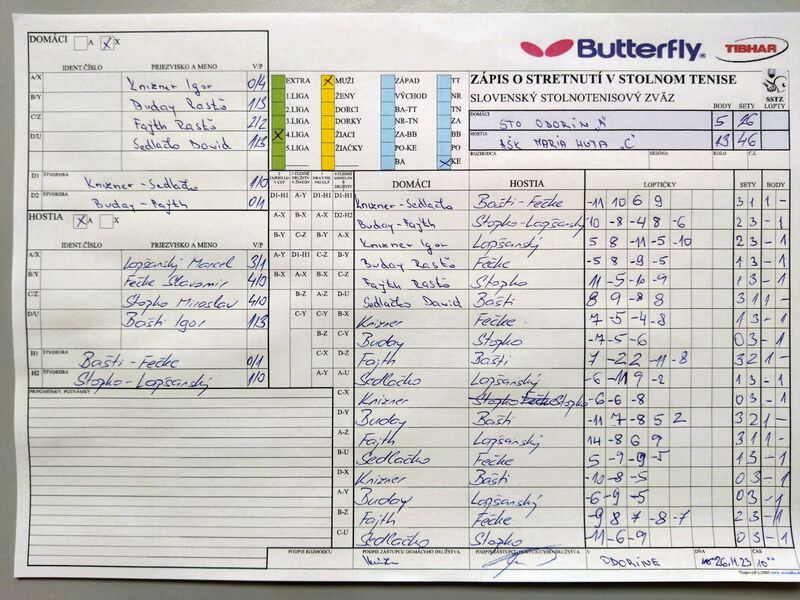 DOMÁCI A X X
IDENT.ČÍSLO PRIEZVISKO A MENO V/P
A/X Knizner Igor 0/4
B/Y Buday Rastö 1/3
C/Z Fajth Rastö 2/2
D/U Sedlačko David 1/3
D1 ŠTVORHRA Knizner-Sedlačko 1/0
D2 ŠTVORHRA Buday-Fajth 0/1
HOSTIA X A X
IDENT.ČÍSLO PRIEZVISKO A MENO V/P
A/X Lopšanský Marcel 3/1
B/Y Fečke Slavomír 4/0
C/Z Stopko Miroslav 4/0
D/U Bašti Igor 1/3
H1 ŠTVORHRA Bašti-Fečke 0/1
H2 ŠTVORHRA Stopko-Lopšanský 1/0
PRIPOMIENKY, POZNÁMKY
Butterfly TIBHAR
EXTRA X MUŽI ZÁPAD TT
1.LIGA ŽENY VÝCHOD NR
2.LIGA DORCI BA-TT TN
3.LIGA DORKY NR-TN ZA
X 4.LIGA ŽIACI ZA-BB BB
5.LIGA ŽIAČKY PO-KE PO
BA X KE
ZÁPIS O STRETNUTÍ V STOLNOM TENISE
SLOVENSKÝ STOLNOTENISOVÝ ZVÄZ SSTZ
BODY SETY LOPTY
DOMÁCI STO ODORÍN "A" 5 26
HOSTIA AŠK MARIA HUTA "C" 13 46
ROZHODCA SEZÓNA KOLO Č.Z.
DOMÁCI HOSTIA LOPTIČKY SETY BODY
D1-H1 A-Y D1-H1 D1-H1 Knizner-Sedlačko Bašti-Fečke -11 10 6 9 3 1 1 -
A-X B-X A-X D2-H2 Buday-Fajth Stopko-Lopšanský 10 -8 -4 8 -6 2 3 - 1
B-Y C-Z B-Y A-X Knizner Igor Lopšanský 5 8 -11 -5 -10 2 3 - 1
A-Y D1-H1 C-Z B-Y Buday Rastö Fečke -5 8 -9 -5 1 3 - 1
B-X A-X B-X C-Z Fajth Rastö Stopko 11 -5 -10 -9 1 3 - 1
B-Z A-Z D-U Sedlačko David Bašti 8 9 -8 8 3 1 1 -
C-Y C-Y B-X Knizner Fečke 7 -5 -4 -8 1 3 - 1
B-Z C-Y Buday Stopko -7 -5 -6 0 3 - 1
C-X D-Z Fajth Bašti 7 -2 2 -11 -8 3 2 1 -
A-Y A-U Sedlačko Lopšanský -6 -11 9 -2 1 3 - 1
C-X Knizner Stopko -6 -6 -8 0 3 - 1
D-Y Buday Bašti -11 7 -8 5 2 3 2 1 -
A-Z Fajth Lopšanský 14 -8 6 9 3 1 1 -
B-U Sedlačko Fečke 5 -9 -9 -5 1 3 - 1
D-X Knizner Bašti -10 -8 -5 0 3 - 1
A-Y Buday Lopšanský -6 -9 -5 0 3 - 1
B-Z Fajth Fečke -9 8 7 -8 -7 2 3 - 1
C-U Sedlačko Stopko -11 -6 -9 0 3 - 1
PODPIS ROZHODCU PODPIS ZÁSTUPCU DOMÁCEHO DRUŽSTVA PODPIS ZÁSTUPCU HOSŤUJÚCEHO DRUŽSTVA V ODORÍNE DŇA 26.11.23 ČAS 10⁰⁰